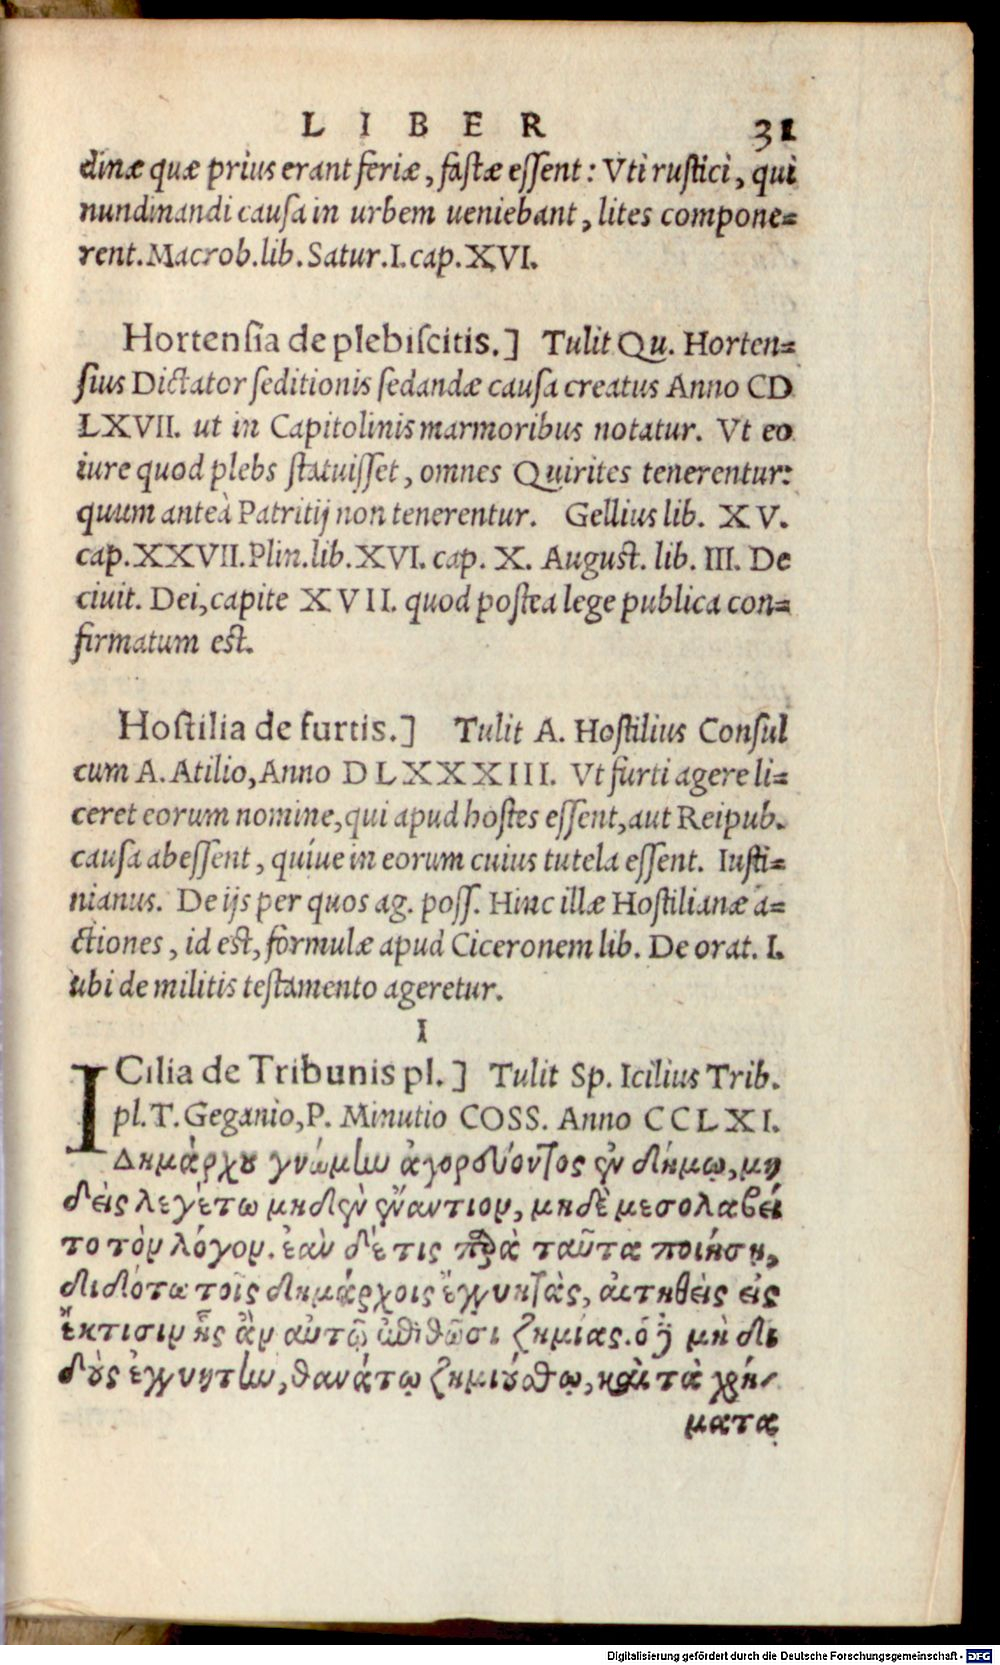 LIBER 31
dinæ quæ prius erant feriæ, fastæ essent: Vti rustici, qui
nundinandi causa in urbem ueniebant, lites compone=
rent. Macrob. lib. Satur. I. cap. XVI.
Hortensia de plebiscitis.] Tulit Qu. Horten=
sius Dictator seditionis sedandæ causa creatus Anno CD
LXVII. ut in Capitolinis marmoribus notatur. Vt eo
iure quod plebs statuisset, omnes Quirites tenerentur:
quum anteà Patritij non tenerentur. Gellius lib. XV.
cap. XXVII. Plin. lib. XVI. cap. X. August. lib. III. De
ciuit. Dei, capite XVII. quod postea lege publica con=
firmatum est.
Hostilia de furtis.] Tulit A. Hostilius Consul
cum A. Atilio, Anno DLXXXIII. Vt furti agere li=
ceret eorum nomine, qui apud hostes essent, aut Reipub.
causa abessent, quiue in eorum cuius tutela essent. Iusti=
nianus. De ijs per quos ag. poss. Hinc illæ Hostilianæ a=
ctiones, id est, formulæ apud Ciceronem lib. De orat. I.
ubi de militis testamento ageretur.
I
ICilia de Tribunis pl.] Tulit Sp. Icilius Trib.
pl. T. Geganio, P. Minutio COSS. Anno CCLXI.
Δημάρχου γνώμην ἀγορεύοντος ἐν δήμῳ, μη
δεὶς λεγέτω μηδὲν ἐναντίον, μηδὲ μεσολαβεί
τω τὸν λόγον. ἐὰν δέ τις παρὰ ταῦτα ποιήσῃ,
διδότω τοῖς δημάρχοις ἐγγυητὰς, αἰτηθεὶς εἰς
ἔκτισιν ἧς ἂν αὐτῷ ἐπιθῶσι ζημίας. ὁ δὲ μὴ δι
δοὺς ἐγγυητὴν, θανάτῳ ζημιούσθω, καὶ τὰ χρή-
ματα
Digitalisierung gefördert durch die Deutsche Forschungsgemeinschaft - DFG